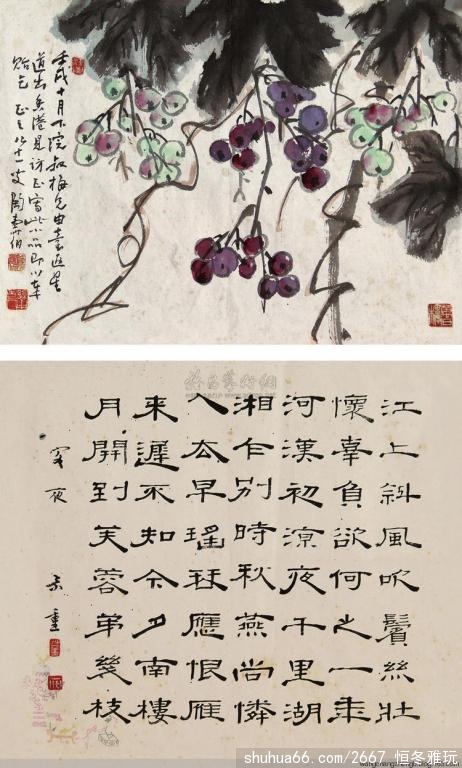 壬戌十月下浣叔梅兄由臺返星
道出香港見訪正寫此小品即以奉
正之 陶壽伯
江上斜風吹鬢絲壯
懷辜負欲何之一秊
河漢初涼夜千里湖
湘乍別時秋燕尚憐
人去早瑤琴應恨雁
來遲不知今夕南樓
月開到芙蓉弟幾枝
夜
shuhua66.com/2667 恒冬雅玩